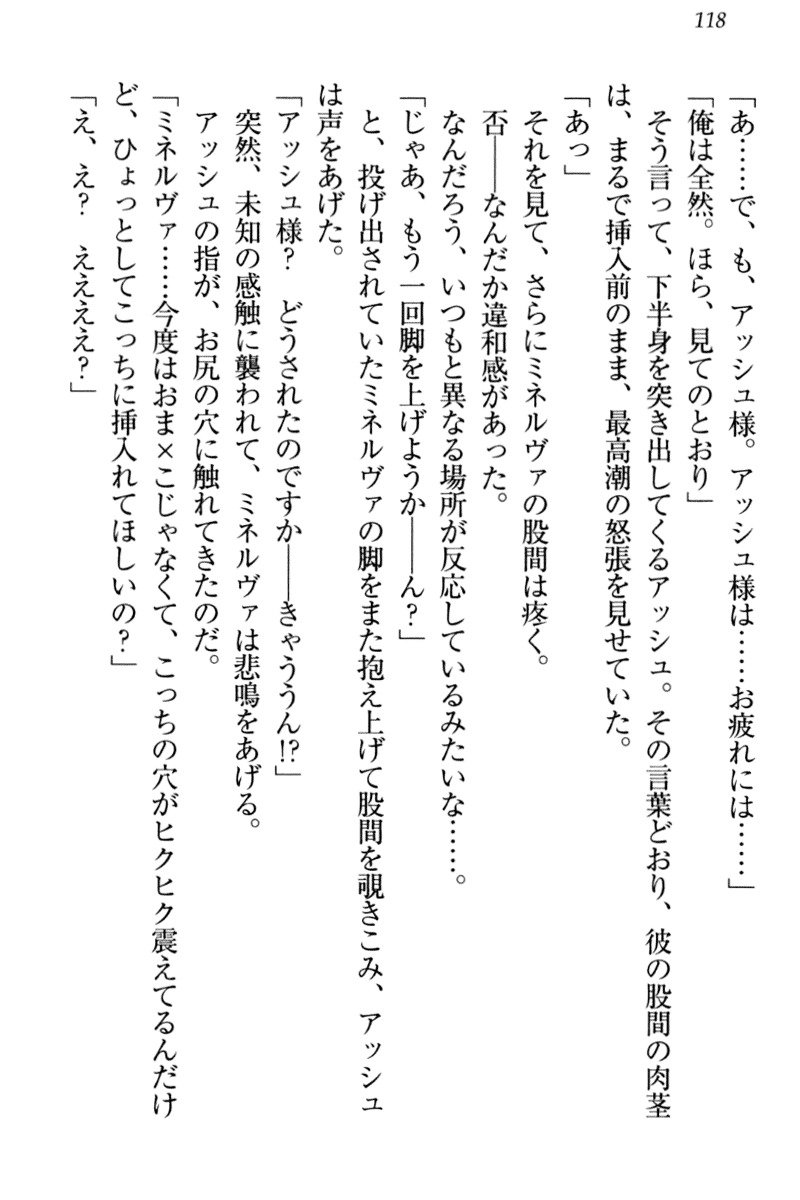 118
「あ……で、も、アッシュ様。アッシュ様は……お疲れには……」
「俺は全然。ほら、見てのとおり」
そう言って、下半身を突き出してくるアッシュ。その言葉どおり、彼の股間の肉茎
は、まるで挿入前のまま、最高潮の怒張を見せていた。
「あっ」
それを見て、さらにミネルヴァの股間は疼く。
否――なんだか違和感があった。
なんだろう、いつもと異なる場所が反応しているみたいな……。
「じゃあ、もう一回脚を上げようか――ん?」
と、投げ出されていたミネルヴァの脚をまた抱え上げて股間を覗きこみ、アッシュ
は声をあげた。
「アッシュ様?　どうされたのですか――きゃううん!?」
突然、未知の感触に襲われて、ミネルヴァは悲鳴をあげる。
アッシュの指が、お尻の穴に触れてきたのだ。
「ミネルヴァ……今度はおま×こじゃなくて、こっちの穴がヒクヒク震えてるんだけ
ど、ひょっとしてこっちに挿入れてほしいの?」
「え、え?　ええええ?」